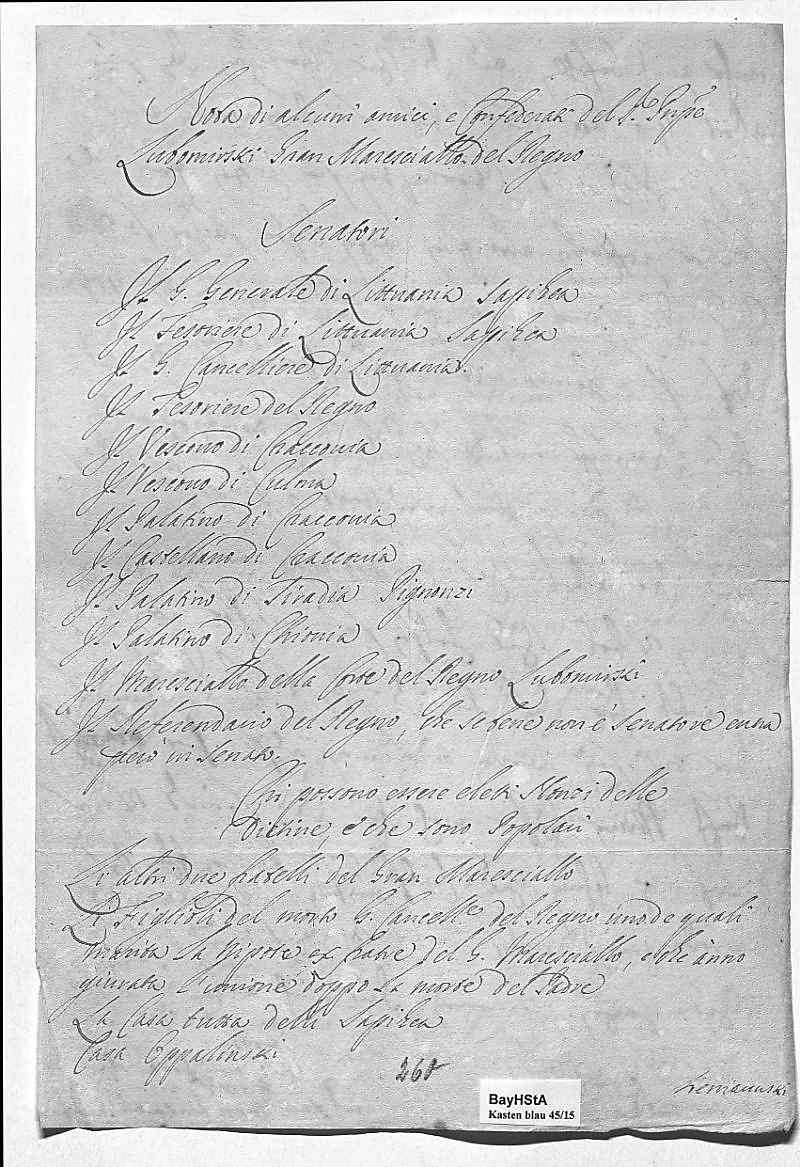 Nota di alcuni amici, e Confederati del S.r Prpe
Lubomirski Gran Maresciallo del Regno
Senatori
Il G. Generale di Littuania Sapihea
Il Tesoriere di Littuania Sapihea
Il G. Cancelliere di Littuania.
Il Tesoriere del Regno
Il Vescovo di Cracovia
Il Vescovo di Culma
Il Palatino di Cracovia
Il Castellano di Cracovia
Il Palatino di Siradia
Il Palatino di Chiovia
Il Maresciallo della Corte del Regno Lubomirski
Il Referendario del Regno, che sebene non é Senatore entra
peró in Senato.
Chi possono essere eletti Nonzi delle
Dietine, é che sono Popolari
Li altri due fratelli del Gran Maresciallo
Li Figlioli del morto G. Cancell.e del Regno uno de quali
la Nipote ex fratre del G. Maresciallo, e che ànno
giurata l'unione doppo la morte del Padre
La Casa tutta delli Sapihea
Casa Oppalinski
260
BayHStA
Kasten blau 45/15